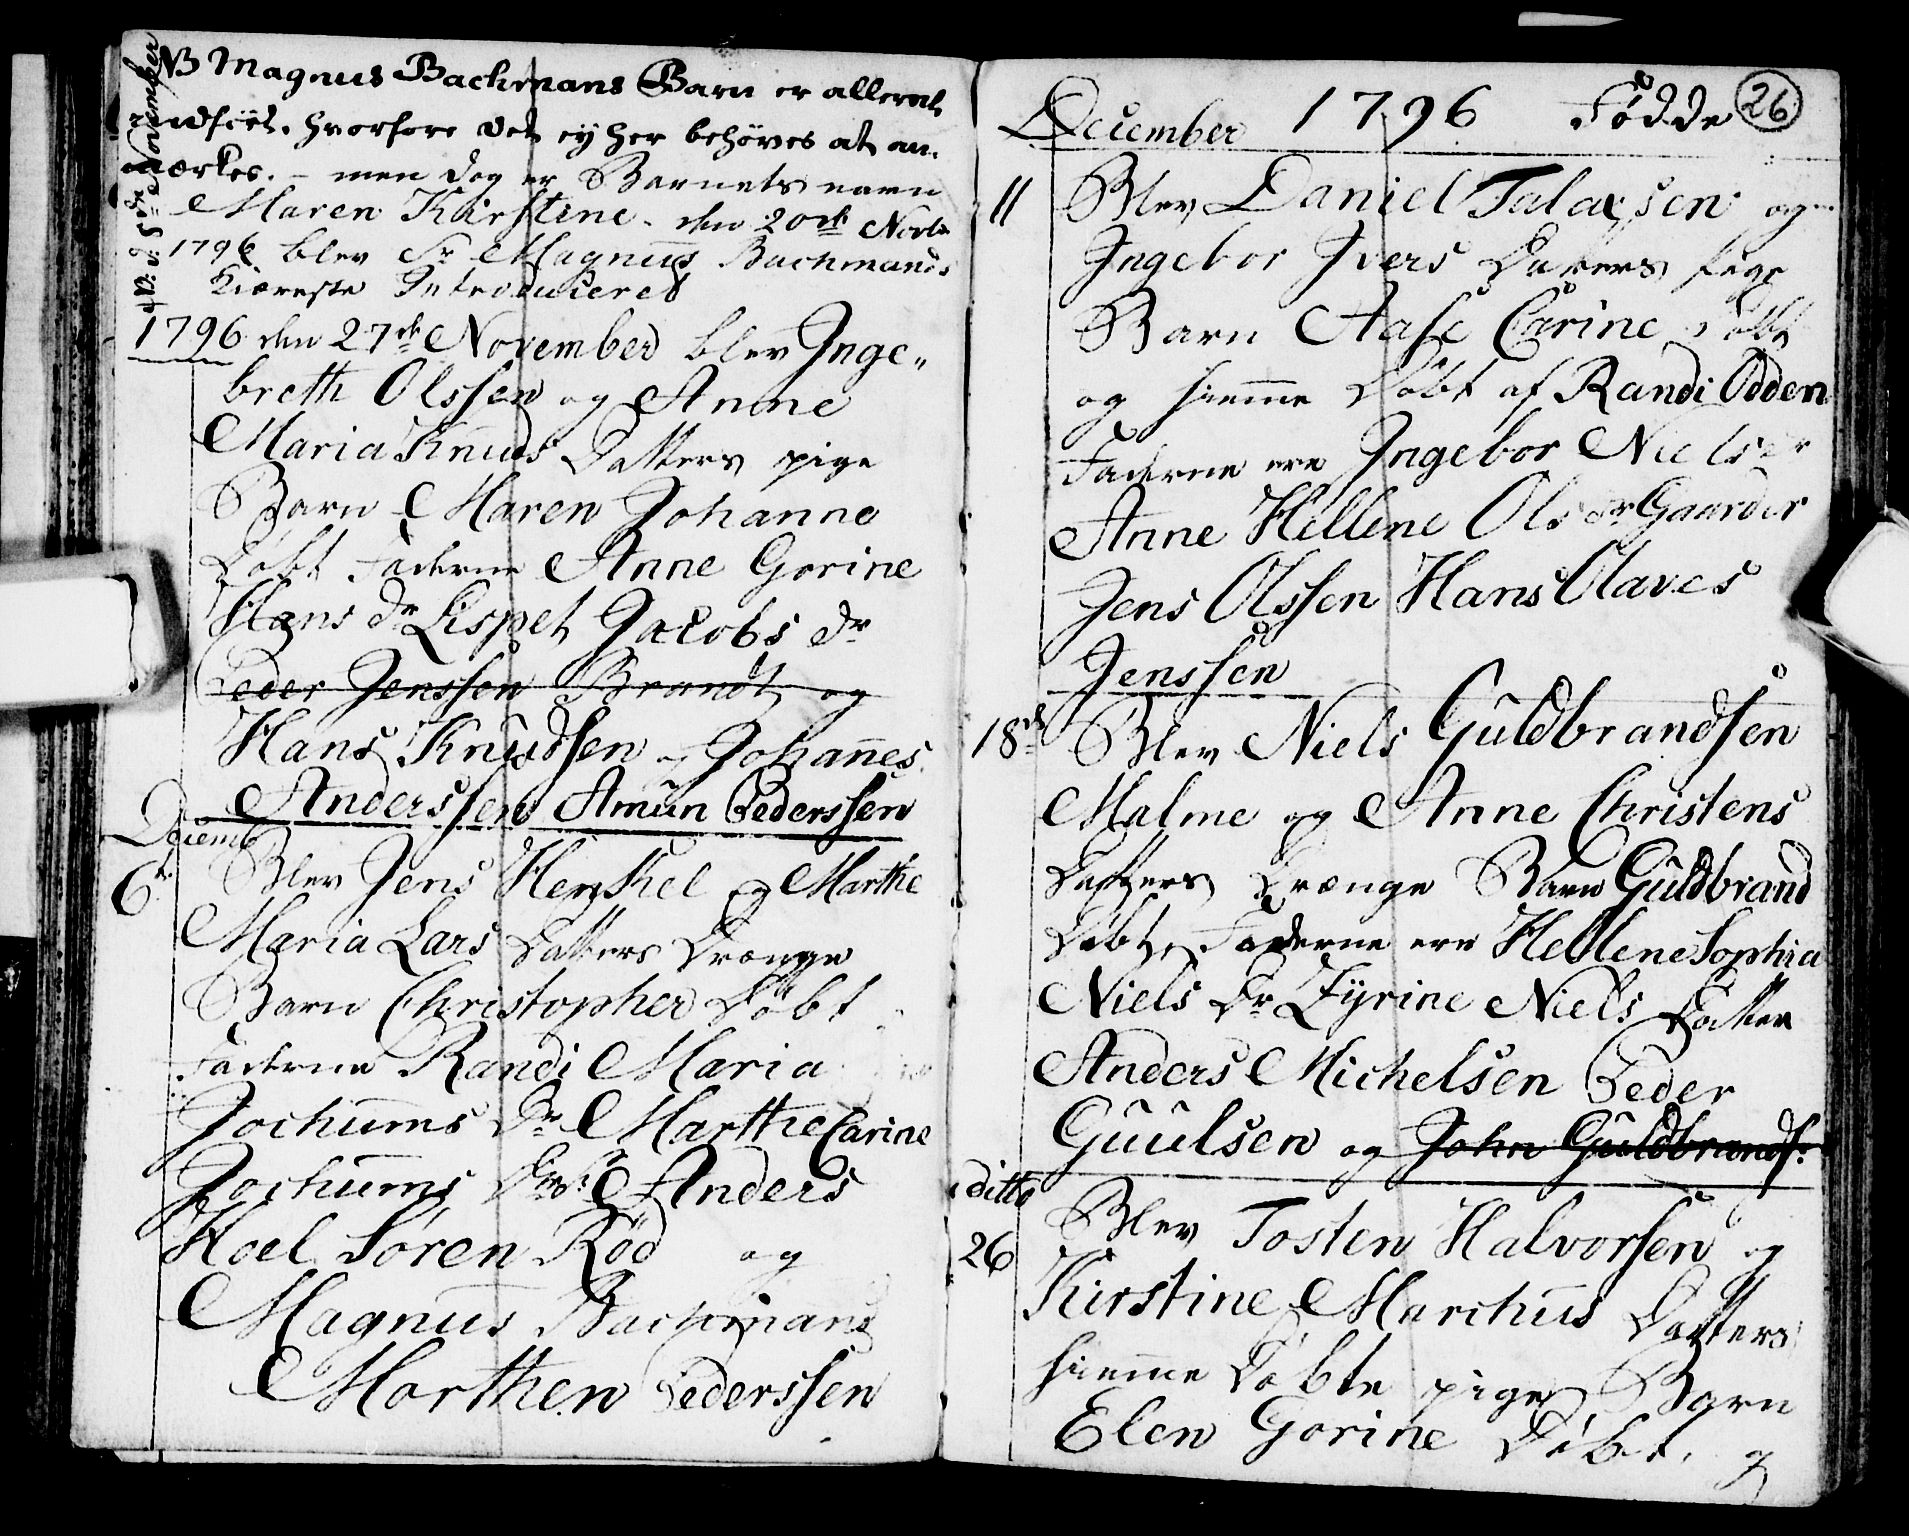 NB Magnus Bachmans Barn er allereede
indfört. hvorfore det ey her behöves at an-
mærkes. - men dog er Barnets navn
Maren Kirstine - den 20de Novb
1796 blev Sr Magnus Bachmands
Kiæreste Introduceret
NB: d: 5te November
1796 den 27de November blev Inge-
breth Olssen og Anne
Maria Knuds Datters pige
Barn Maren Johanne
Döbt Faderne Anne Gorine
Hans Dr Lispet Jacobs Dr
Peder Jenssen Brandt og
Hans Knudsen og Johannes
Anderssen Amun Pederssen
Decemb
6te Blev Jens Henkel og Marthe
Maria Lars Datters Drænge
Barn Christopher Döbt
Faderne Randi Maria
Jochums Dr Marthe Carine
Jochums Dr Anders
Hoel Sören Röd og
Magnus Bachmans
Morthen Pederssen
December 1796 Födde 26
11 Blev Daniel Talaxsen og
Ingebor Ivers Daters pige
Barn Aase Carine Födt
og hiemme Döbt af Randi Odden
Faderne ere Ingebor Niels Dr
Anne Hellene Ols Dr Gaarder
Jens Olssen Hans Olaves
Jenssen
18de Blev Niels Guldbrandsen
Malme og Anne Christens
Datters Drænge Barn Guldbrand
Döbt, Faderne ere Hellene Sophia
Niels Dr Zyrine Niels Datter
Anders Michelsen Peder
Guulsen og John Guldbrands:
ditto
26 Blev Tosten Halvorsen og
Kirstine Marchus Datters
hiemme Döbte pige Barn
Elen Gorine Döbt, og